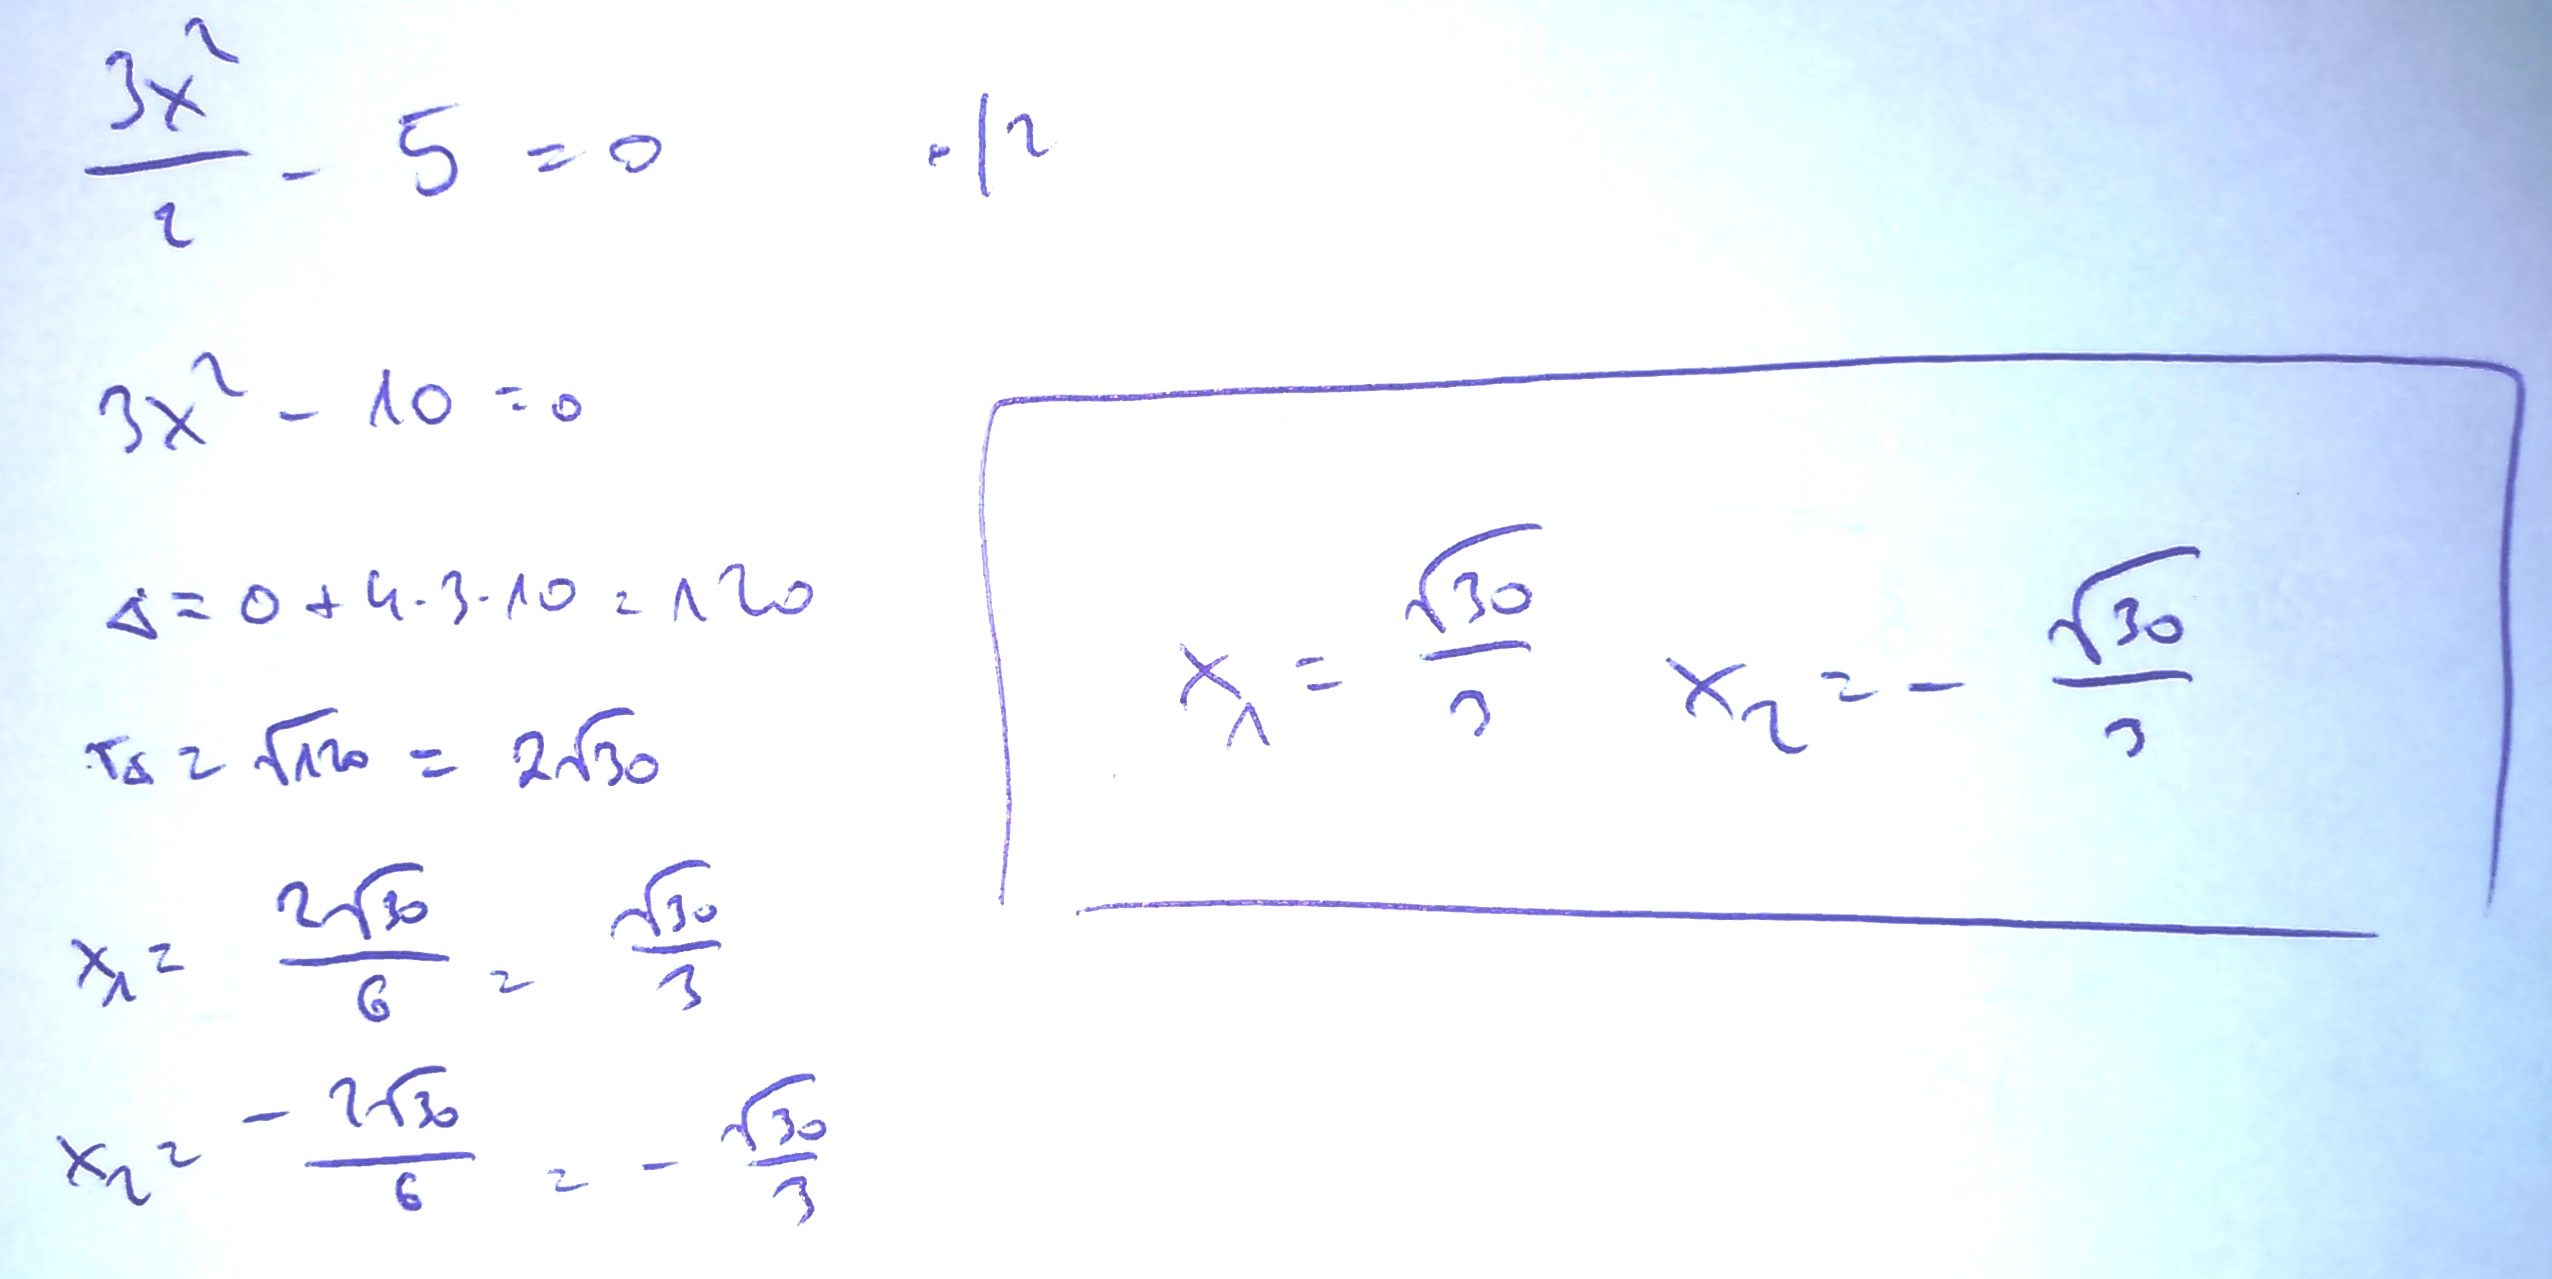 3x²/2 - 5 = 0 ·/2
3x² - 10 = 0
Δ = 0 + 4·3·10 = 120
√Δ = √120 = 2√30
x₁ = 2√30/6 = √30/3
x₂ = -2√30/6 = -√30/3
x₁ = √30/3 x₂ = -√30/3